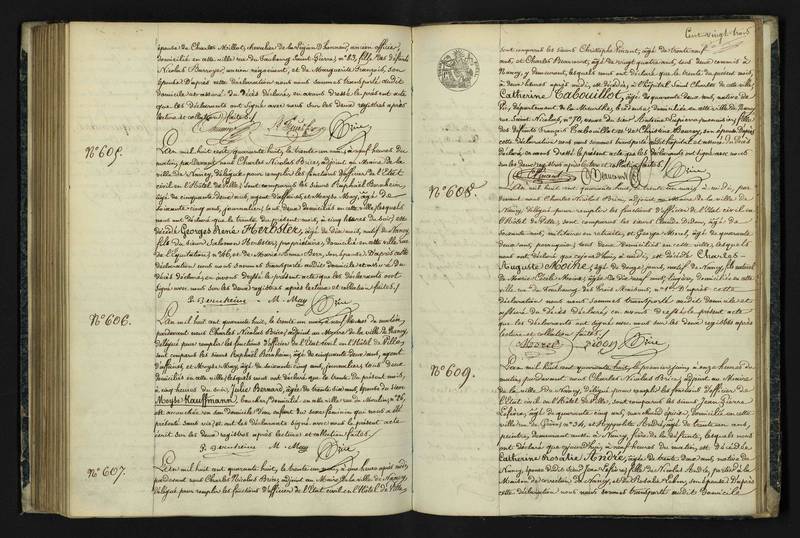 épouse de Charles Millot, chevalier de la Légion d'honneur, ancien officier,
domicilié en cette ville rue du Faubourg Saint Pierre, n° 83, fille des défunts
Nicolas ancien négociant, et de Marguerite François, son
épouse. D'après cette déclaration nous nous sommes transporté audit
domicile et assuré du décès déclaré, en avons dressé le présent acte
que les déclarants ont signé avec nous sur les deux registres après
lecture et collation faites.
N° 605.
L'an mil huit cent quarante huit, le trente un mai, à neuf heures du
matin, par devant nous Charles Nicolas Brice, adjoint au Maire de la
ville de Nancy, délégué pour remplir les fonctions d'officier de l'Etat
civil en l'Hôtel de Ville, sont comparus les sieurs Raphaël Bernheim,
âgé de cinquante deux ans, agent d'affaires, et Moyse May, âgé de
soixante cinq ans, journalier, tous deux domiciliés en cette ville, lesquels
nous ont déclaré que le trente du présent mois, à cinq heures du soir, est
décédé Georges René Herbster, âgé de dix mois, natif de Nancy,
fils du sieur Salomon Herbster, propriétaire, domicilié en cette ville rue
de l'Equitation, n° 16, et de Marie Anne Berr, son épouse. D'après cette
déclaration nous nous sommes transporté audit domicile et assuré du
décès déclaré, en avons dressé le présent acte que les déclarants ont
signé avec nous sur les deux registres après lecture et collation faites.
R. Bernheim M. May Brice
N° 606.
L'an mil huit cent quarante huit, le trente un mai, à neuf heures du matin,
pardevant nous Charles Nicolas Brice, adjoint au Maire de la ville de Nancy,
délégué pour remplir les fonctions d'officier de l'Etat civil en l'Hôtel de Ville,
sont comparus les sieurs Raphaël Bernheim, âgé de cinquante deux ans, agent
d'affaires, et Moyse May, âgé de soixante cinq ans, journalier, tous deux
domiciliés en cette ville, lesquels nous ont déclaré que le trente du présent mois,
à cinq heures du soir, Julie Bernard, âgée de trente six ans, épouse du sieur
Moyse Kauffmann, boucher, domicilié en cette ville rue du Moulin, n° 26,
est accouchée en son domicile d'un enfant du sexe féminin qui nous a été
présenté sans vie; et ont les déclarants signé avec nous le présent acte
écrit sur les deux registres après lecture et collation faites.
R. Bernheim M. May Brice
N° 607.
L'an mil huit cent quarante huit, le trente un mai, à une heure après midi,
pardevant nous Charles Nicolas Brice, adjoint au Maire de la ville de Nancy,
délégué pour remplir les fonctions d'officier de l'Etat civil en l'Hôtel de Ville,
Cent vingt trois
sont comparus les sieurs Christophe Pinant, âgé de trente neuf
ans, et Charles Beaumont, âgé de vingt quatre ans, tous deux commis à
Nancy, y demeurant, lesquels nous ont déclaré que le trente du présent mois,
à deux heures après midi, est décédée, à l'hôpital Saint Charles de cette ville,
Catherine Tabouillot, âgée de quarante deux ans, native de
Pré, département de la Moselle, brodeuse, domiciliée en cette ville de Nancy,
rue Saint Nicolas, n° 10, veuve du sieur Antoine Lapierre, menuisier, fille
des défunts François Tabouillot et de Christine son épouse. D'après
cette déclaration nous nous sommes transporté audit hôpital et assuré du décès
déclaré en avons dressé le présent acte que les déclarants ont signé avec nous
sur les deux registres après lecture et collation faites.
C. Pinant Brice
N° 608.
L'an mil huit cent quarante huit, le trente un mai, à midi, par
devant nous Charles Nicolas Brice, adjoint au maire de la ville de
Nancy, délégué pour remplir les fonctions d'officier de l'Etat civil en
l'Hôtel de Ville, sont comparus les sieurs Claude Didon, âgé de
soixante ans, militaire en retraite, et George Morel, âgé de quarante
deux ans, tous deux domiciliés en cette ville, lesquels
nous ont déclaré que cejourd'hui, à midi, est décédé Charles-
Auguste Moitre, âgé de douze jours, natif de Nancy, fils naturel
de Marie Cécile Moitre, âgée de dix neuf ans, lingère, domiciliée en cette
ville rue du Faubourg des Trois Maisons, n° 1er. D'après cette
déclaration nous nous sommes transporté audit domicile et
assuré du décès déclaré, en avons dressé le présent acte
que les déclarants ont signé avec nous sur les deux registres après
lecture et collation faites.
Morel Didon Brice
N° 609.
L'an mil huit cent quarante huit, le premier juin, à onze heures du
matin, par devant nous Charles Nicolas Brice, adjoint au Maire
de la ville de Nancy, délégué pour remplir les fonctions d'officier de
l'Etat civil en l'Hôtel de Ville, sont comparus les sieurs Jean Pierre
Lefèvre, âgé de quarante cinq ans, marchand épicier, domicilié en cette
ville rue de Grève, n° 34, et Hyppolite André, âgé de trente un ans,
peintre, demeurant aussi à Nancy, frère de la défunte, lesquels nous
ont déclaré que cejourd'hui, à neuf heures du matin, est décédée
Catherine Rosalie André, âgée de trente deux ans, native de
Nancy, épouse dudit sieur Jean Lefèvre, fille de Nicolas André, portier à la
Maison de correction de Nancy, et de Rosalie son épouse. D'après
cette déclaration nous nous sommes transporté audit domicile